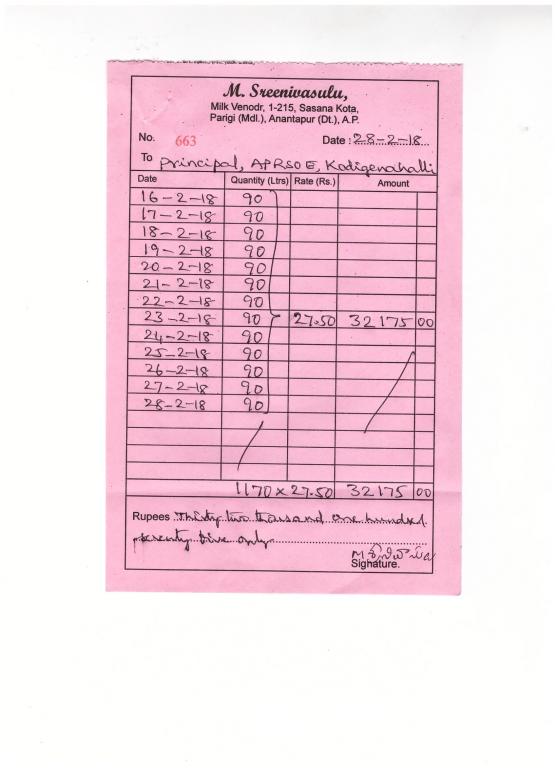 M. Sreenivasulu,
Milk Venodr, 1-215, Sasana Kota,
Parigi (Mdl.), Anantapur (Dt.), A.P.
No. 663 Date : 28-2-18
To Principal, APRSOE, Kodigenahalli
Date Quantity (Ltrs) Rate (Rs.) Amount
16-2-18 90
17-2-18 90
18-2-18 90
19-2-18 90
20-2-18 90
21-2-18 90
22-2-18 90
23-2-18 90 27.50 32175 00
24-2-18 90
25-2-18 90
26-2-18 90
27-2-18 90
28-2-18 90
1170 x 27.50 32175 00
Rupees Thirty two thousand one hundred
seventy five only
Signature.